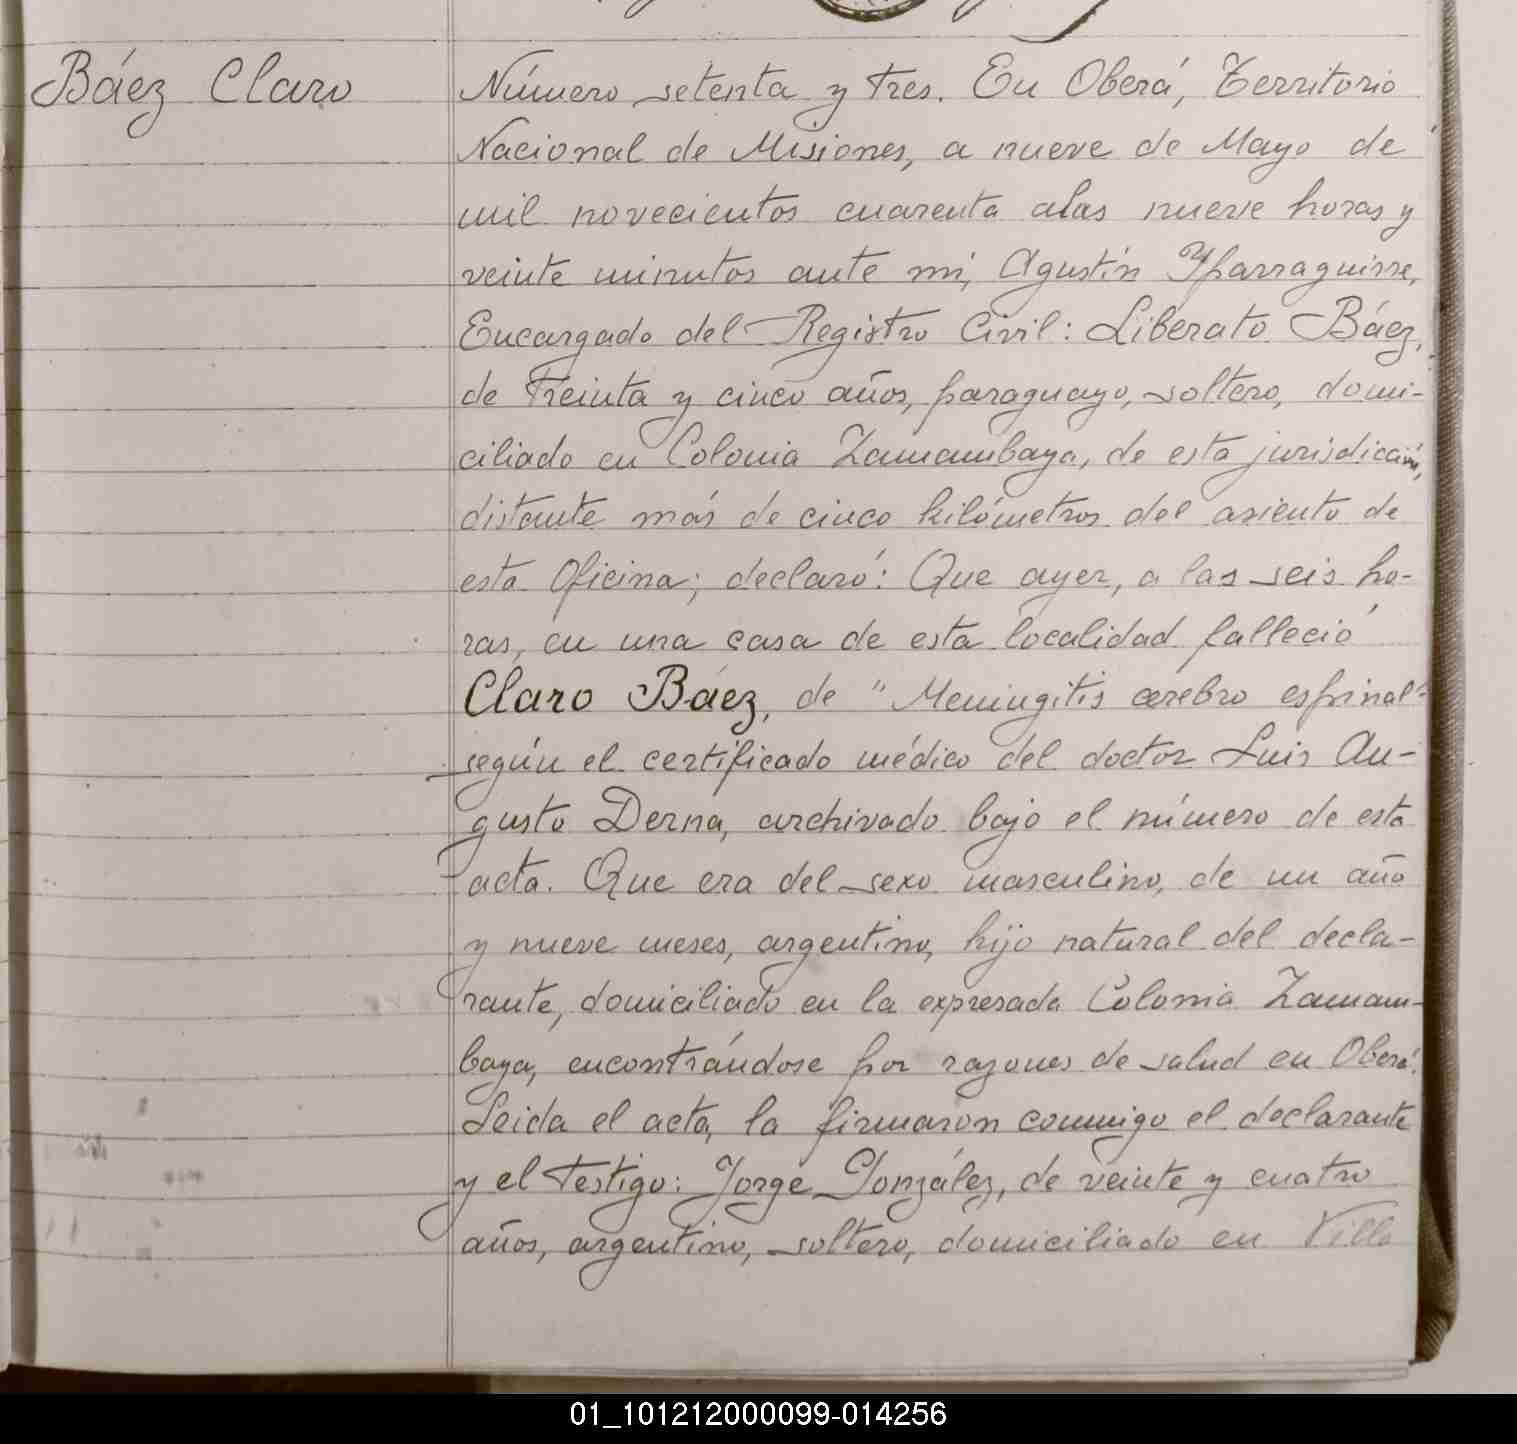 Báez Claro
Número setenta y tres. En Oberá, Territorio
Nacional de Misiones, a nueve de Mayo de
mil novecientos cuarenta alas nueve horas y
veinte minutos ante mi, Agustín Yparraguirre,
Encargado del Registro Civil: Liberato Báez,
de treinta y cinco años, paraguayo, soltero, domi-
ciliado en Colonia Zamambaya, de esta jurisdicción,
distante más de cinco kilómetros del asiento de
esta Oficina; declaró: Que ayer, a las seis ho-
ras, en una casa de esta localidad falleció
Claro Báez, de "Meningitis cerebro espinal"
según el certificado médico del doctor Luis Au-
gusto Derna, archivado bajo el número de esta
acta. Que era del sexo masculino, de un año
y nueve meses, argentino, hijo natural del decla-
rante, domiciliado en la expresada Colonia Zamam-
baya, encontrándose por razones de salud en Oberá.
Leida el acta, la firmaron conmigo el declarante
y el testigo: Jorge González, de veinte y cuatro
años, argentino, soltero, domiciliado en Villa
01_101212000099-014256